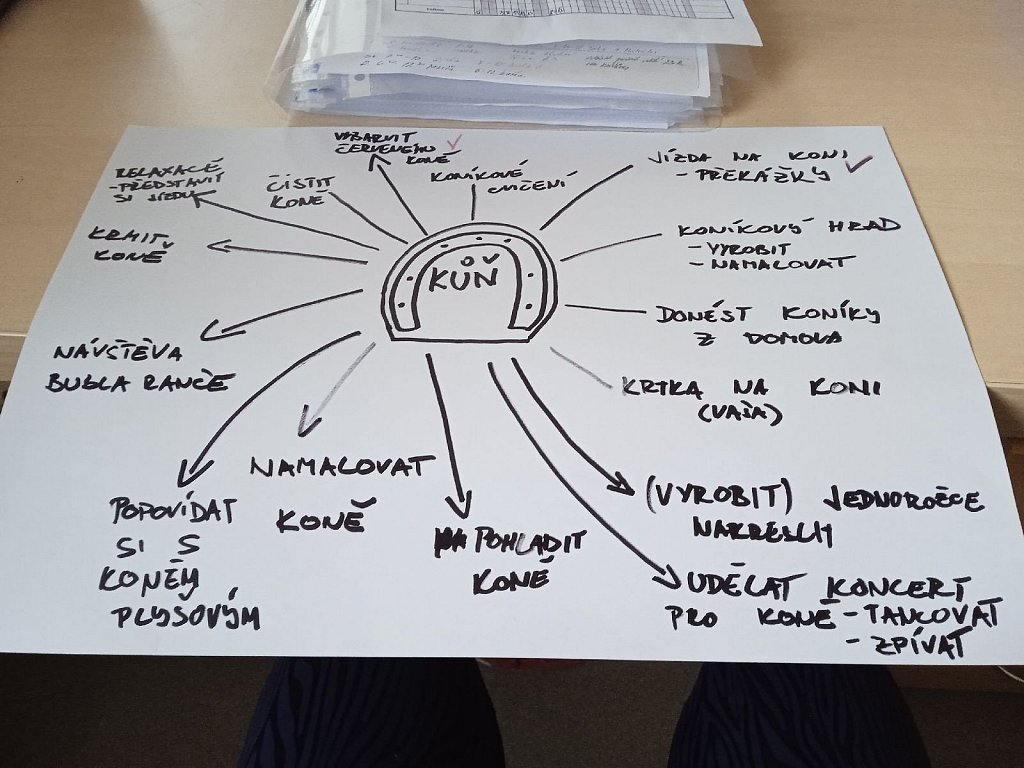 VYBARVIT
ČERVENÉHO
KONĚ
RELAXACE
- PŘEDSTAVIT
SI JÍZDU
ČISTIT
KONĚ
KONÍKOVÉ
CVIČENÍ
JÍZDA NA KONI
- PŘEKÁŽKY
KRMIT
KONĚ
KŮŇ
KONÍKOVÝ HRAD
- VYROBIT
- NAMALOVAT
DONÉST KONÍKY
Z DOMOVA
NÁVŠTĚVA
RANČE
KRTKA NA KONI
(VAŠA)
NAMALOVAT
KONĚ
POPOVÍDAT
SI S
KONĚM
PLYŠOVÝM
POHLADIT
KONĚ
(VYROBIT) JEDNOROŽCE
UDĚLAT KONCERT
PRO KONĚ - TANCOVAT
- ZPÍVAT